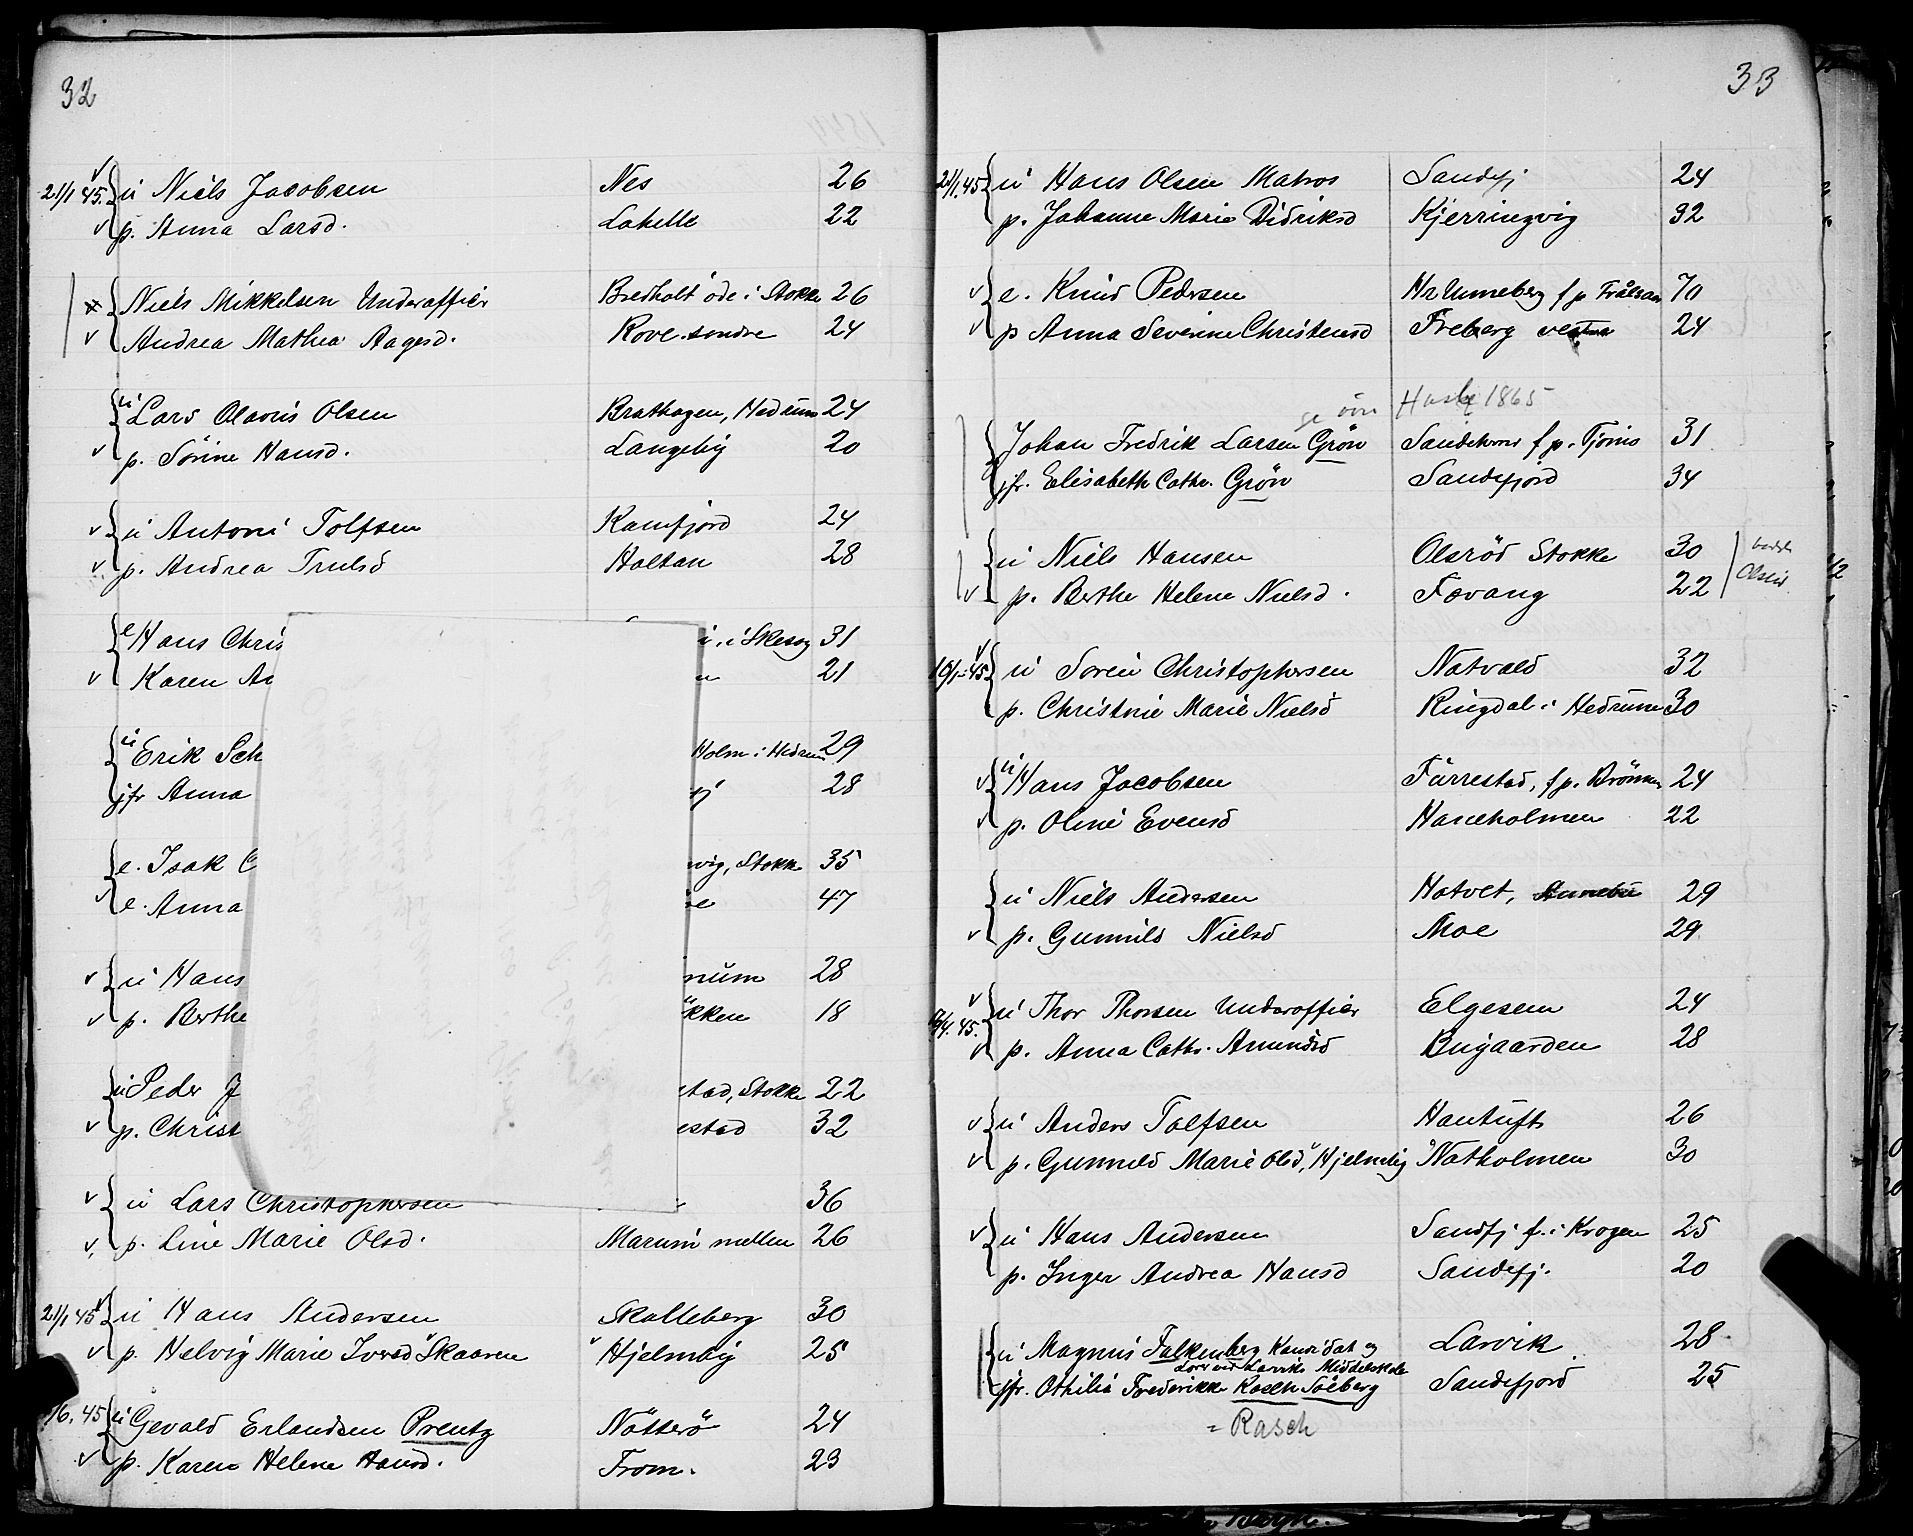 32
21/1 45. u Niels Jacobsen Nes 26
p. Anna Larsd. Lahelle 22
Niels Mikkelsen Underofficir Bredholt öde i Stokke 26
Andrea Mathea Aagesd. Rove søndre 24
u Lars Olavus Olsen Brathagen, Hedrum 24
p. Sörine Hansd. Langeby 20
u Antoni Tolfsen Kamfjord 24
p. Andrea Trulsd Haltan 28
e Hans Chris i Skesog 31
Karen Aa 21
u Erik Sch Holm i Hedrum 29
jfr Anna 28
e. Isak C vig, Stokke 35
e. Anna 47
u Hans num 28
p. Berthe ökken 18
u Peder J stad, Stokke 22
p. Christ estad 32
u Lars Christophersen 36
p. Line Marie Olsd. Marum mellem 26
21/1 45 u Hans Andersen Skalleberg 30
p. Helvig Marie Iversd "Skaaren "Hjelmby 25
/6. 45 u Gevald Erlandsen Prentz Nötterö 24
p. Karen Helene Hansd. From. 23
33
21/1.45 u Hans Olsen Matros Sandefj 24
p. Johanne Marie Didriksd Kjerringvig 32
e. Knud Pedersen Nr Unneberg f p Trålsaas 70
p Anna Severine Christensd Freberg vestre 24
Hasle 1865
Johan Fredrik Larsen Grön f p. Tjömö 31
jfr. Elisabeth Cathr. Grön Sandefjord 34
u Niels Hansen Olsröd Stokke 30
p. Berthe Helene Nielsd. Fevang 22
16/1 45 u Sören Christophersen Natvald 32
p. Christine Marie Nielsd Ringdal i Hedrum 30
u Hans Jacobsen Furrestad, f p. 24
p. Oline Evensd Haneholmen 22
u Niels Andersen Hotvet, Annebu 29
p. Gunnild Nielsd Moe 29
/4. 45. u Thor Thorsen Underofficir Elgesem 24
p. Anna Cathr. Amundsd Bugaarden 28
u Anders Tolfsen Hantuft 26
p. Gunnild Marie Olsd, "Hjelmby "Natholmen 30
u Hans Andersen Sandfj f. i Krogen 25
p. Inger Andrea Hansd Sandefj. 20
u Magnus Falkenberg Kandidat og Larvik 28
Lærer ved Larviks Middelskole
jfr. Othilie Frederikke Rasch Söeberg Sandefjord 25
= Rasch